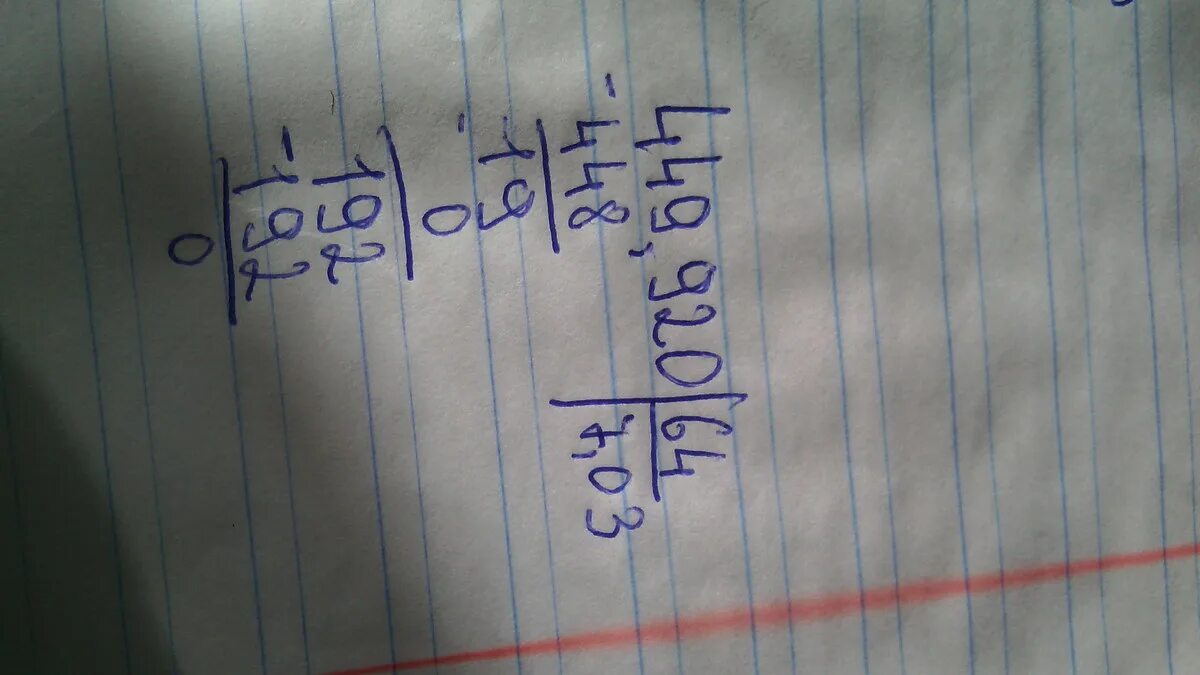 449,920 64
- 448 7,03
19
- 0
192
- 192
0